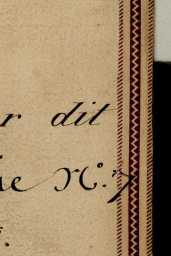 r dit
ue N.° 7